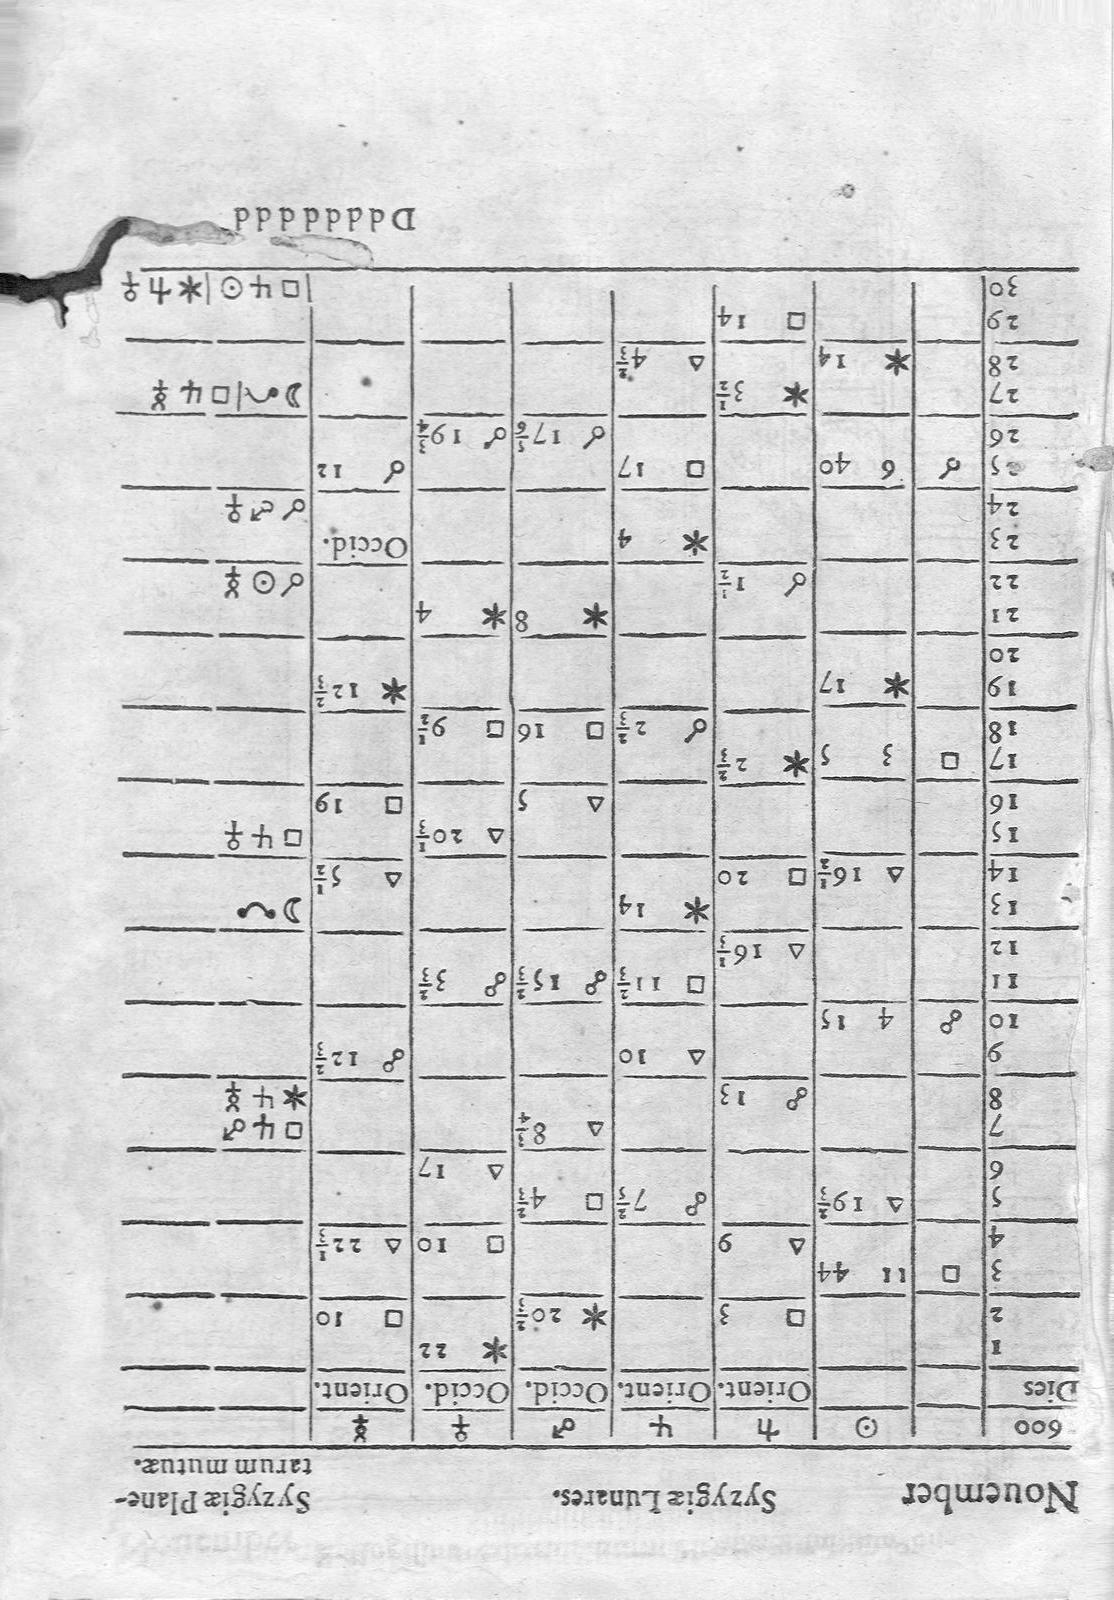 Nouember Syzygiæ Lunares. Syzygiæ Plane-
tarum mutuæ.
600 ☉ ♄ ♃ ♂ ♀ ☿
Dies Orient. Orient. Occid. Occid. Orient.
1 ✶ 22
2 □ 3 ✶ 20 2/3 □ 10
3 □ 11 44
4 △ 9 □ 10 △ 22 1/3
5 △ 19 2/3 ☍ 7 2/5 □ 4 2/3
6 △ 17
7 △ 8 3/4 □ ♃ ♂
8 ☍ 13 ✶ ♃ ☿
9 △ 10 ☍ 12 2/3
10 ☍ 4 15
11 □ 11 2/3 ☍ 15 2/3 ☍ 3 2/3
12 △ 16 1/3
13 ✶ 14 ☽
14 △ 16 1/2 □ 20 △ 5 1/2
15 △ 20 1/3 □ ♃ ♀
16 △ 5 □ 19
17 □ 3 5 ✶ 2 2/3
18 ☌ 2 2/3 □ 16 □ 9 1/2
19 ✶ 17 ✶ 12 2/3
20
21 ✶ 8 ✶ 4
22 ☌ 1 1/2 ☌ ☉ ☿
23 ✶ 4 Occid.
24 ☌ ♂ ♀
25 ☌ 6 40 □ 17 ☌ 12
26 ☌ 17 5/6 ☌ 19 3/4
27 ✶ 3 1/2 ☽ | □ ♃ ☿
28 ✶ 14 △ 4 2/3
29 □ 14
30 □ ♃ ☉ | ✶ ♄ ♀
Dddddddd